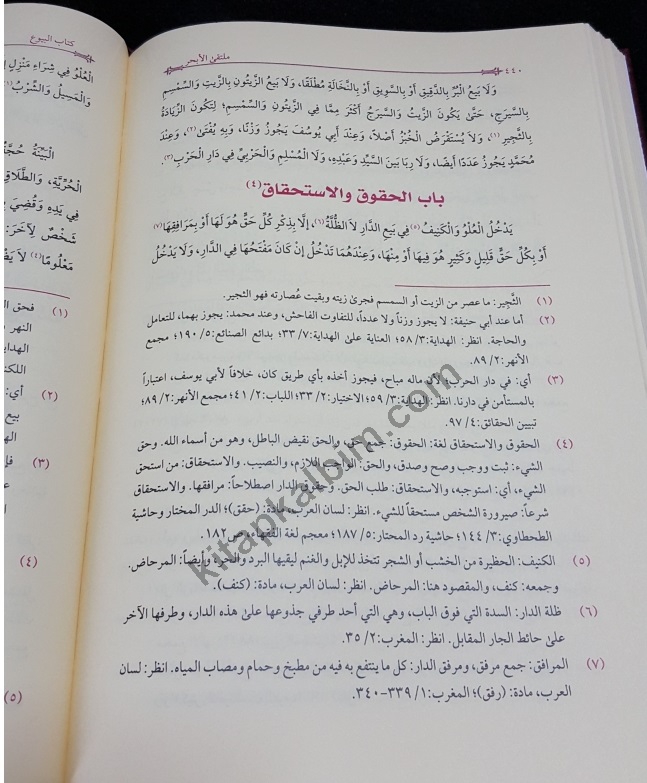 ٤٤٠
ملتقى الأبحر
وَلَا بَيعُ الْبُرِّ بِالدَّقِيقِ أَوْ بِالسَّوِيقِ أَوْ بِالنُّخَالَةِ مُطْلَقًا، وَلَا بَيعُ الزَّيتُونِ بِالزَّيتِ وَالسِّمْسِمِ
بِالسَّيرَجِ، حَتَّىٰ يَكُونَ الزَّيتُ وَالسَّيرَجُ أَكْثَرَ مِمَّا فِي الزَّيتُونِ وَالسِّمْسِمِ؛ لِتَكُونَ الزِّيَادَةُ
بِالثَّجِيرِ(١)، وَلَا يُسْتَقْرَضُ الْخُبْزُ أَصْلًا، وَعِنْدَ أَبِي يُوسُفَ يَجُوزُ وَزْنًا، وَبِهِ يُفْتَىٰ(٢)، وَعِنْدَ
مُحَمَّدٍ يَجُوزُ عَدَدًا أَيضًا، وَلَا رِبَا بَينَ السَّيِّدِ وَعَبْدِهِ، وَلَا الْمُسْلِمِ وَالْحَرْبِيِّ فِي دَارِ الْحَرْبِ(٣).
باب الحقوق والاستحقاق(٤)
يَدْخُلُ الْعُلْوُ وَالْكَنِيفُ(٥) فِي بَيعِ الدَّارِ لَا الظُّلَّةُ(٦)، إِلَّا بِذِكْرِ كُلِّ حَقٍّ هُوَ لَهَا أَوْ بِمَرَافِقِهَا(٧)
أَوْ بِكُلِّ حَقٍّ قَلِيلٍ وَكَثِيرٍ هُوَ فِيهَا أَوْ مِنْهَا، وَعِنْدَهُمَا تَدْخُلُ إِنْ كَانَ مَفْتَحُهَا فِي الدَّارِ، وَلَا يَدْخُلُ
(١) الثَّجِير: ما عصر من الزيت أو السمسم فجرىٰ زيته وبقيت عُصارته فهو الثجير.
(٢) أما عند أبي حنيفة: لا يجوز وزناً ولا عدداً، للتفاوت الفاحش، وعند محمد: يجوز بهما، للتعامل
والحاجة. انظر: الهداية: ٣/ ٥٨؛ العناية علىٰ الهداية: ٧/ ٣٣؛ بدائع الصنائع: ٥/ ١٩٠؛ مجمع
الأنهر: ٢/ ٨٩.
(٣) أي: في دار الحرب؛ لأن ماله مباح، فيجوز أخذه بأي طريق كان، خلافاً لأبي يوسف، اعتباراً
بالمستأمن في دارنا. انظر: الهداية: ٣/ ٥٩؛ الاختيار: ٢/ ٣٣؛ اللباب: ٢/ ٤١؛ مجمع الأنهر: ٢/ ٨٩؛
تبيين الحقائق: ٤/ ٩٧.
(٤) الحقوق والاستحقاق لغة: الحقوق: جمع حق، والحق نقيض الباطل، وهو من أسماء الله. وحق
الشيء: ثبت ووجب وصح وصدق، والحق: الواجب اللازم، والنصيب. والاستحقاق: من استحق
الشيء، أي: استوجبه، والاستحقاق: طلب الحق. وحقوق الدار اصطلاحاً: مرافقها. والاستحقاق
شرعاً: صيرورة الشخص مستحقاً للشيء. انظر: لسان العرب، مادة: (حقق)؛ الدر المختار وحاشية
الطحطاوي: ٣/ ١٤٤؛ حاشية رد المحتار: ٥/ ١٨٧؛ معجم لغة الفقهاء، ص١٨٢.
(٥) الكنيف: الحظيرة من الخشب أو الشجر تتخذ للإبل والغنم ليقيها البرد والحر، وأيضاً: المرحاض.
وجمعه: كنف، والمقصود هنا: المرحاض. انظر: لسان العرب، مادة: (كنف).
(٦) ظلة الدار: السدة التي فوق الباب، وهي التي أحد طرفي جذوعها علىٰ هذه الدار، وطرفها الآخر
علىٰ حائط الجار المقابل. انظر: المغرب: ٢/ ٣٥.
(٧) المرافق: جمع مرفق، ومرفق الدار: كل ما ينتفع به فيه من مطبخ وحمام ومصاب المياه. انظر: لسان
العرب، مادة: (رفق)؛ المغرب: ١/ ٣٣٩-٣٤٠.
كتاب البيوع
الْعُلْوُ فِي شِرَاءِ مَنْزِلٍ
وَالْمَسِيلُ وَالشِّرْبُ(١)
الْبَيِّنَةُ حُجَّةٌ
الْحُرِّيَّةِ، وَالطَّلَاقِ
فِي يَدِهِ وَقُضِيَ
شَخْصٌ لِآخَرَ:
مَعْلُومًا(٤) لَا يَضْ
(١) فحق ال
النهر
الهداية
اللكن
(٢) أي:
بيع
اله
(٣) فل
(٤)
(٥)
kitapkalbim.com